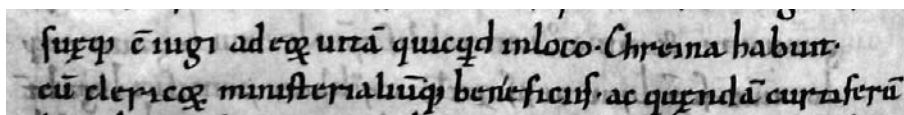 suęq; c̄iugi ad eoꝝ uitā quicq̇d in loco· Chreina habuit·
cū clericoꝝ ministerialiūq; beneficiis· ac quęndā curtiferū